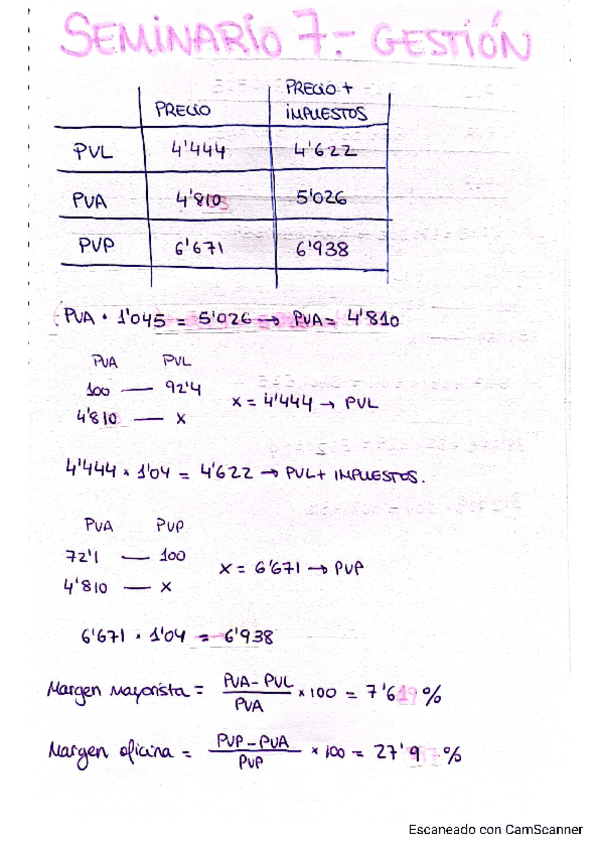 SEMINARIO 7.- GESTIÓN
PRECIO PRECIO + IMPUESTOS
PVL 4'444 4'622
PVA 4'810 5'026
PVP 6'671 6'938
PVA · 1'045 = 5'026 → PVA = 4'810
PVA PVL
100 — 92'4
4'810 — x
x = 4'444 → PVL
4'444 × 1'04 = 4'622 → PVL + IMPUESTOS.
PVA PVP
72'1 — 100
4'810 — x
x = 6'671 → PVP
6'671 · 1'04 = 6'938
Margen mayorista = PVA - PVL / PVA × 100 = 7'6 %
Margen oficina = PVP - PVA / PVP × 100 = 27'9 %
Escaneado con CamScanner